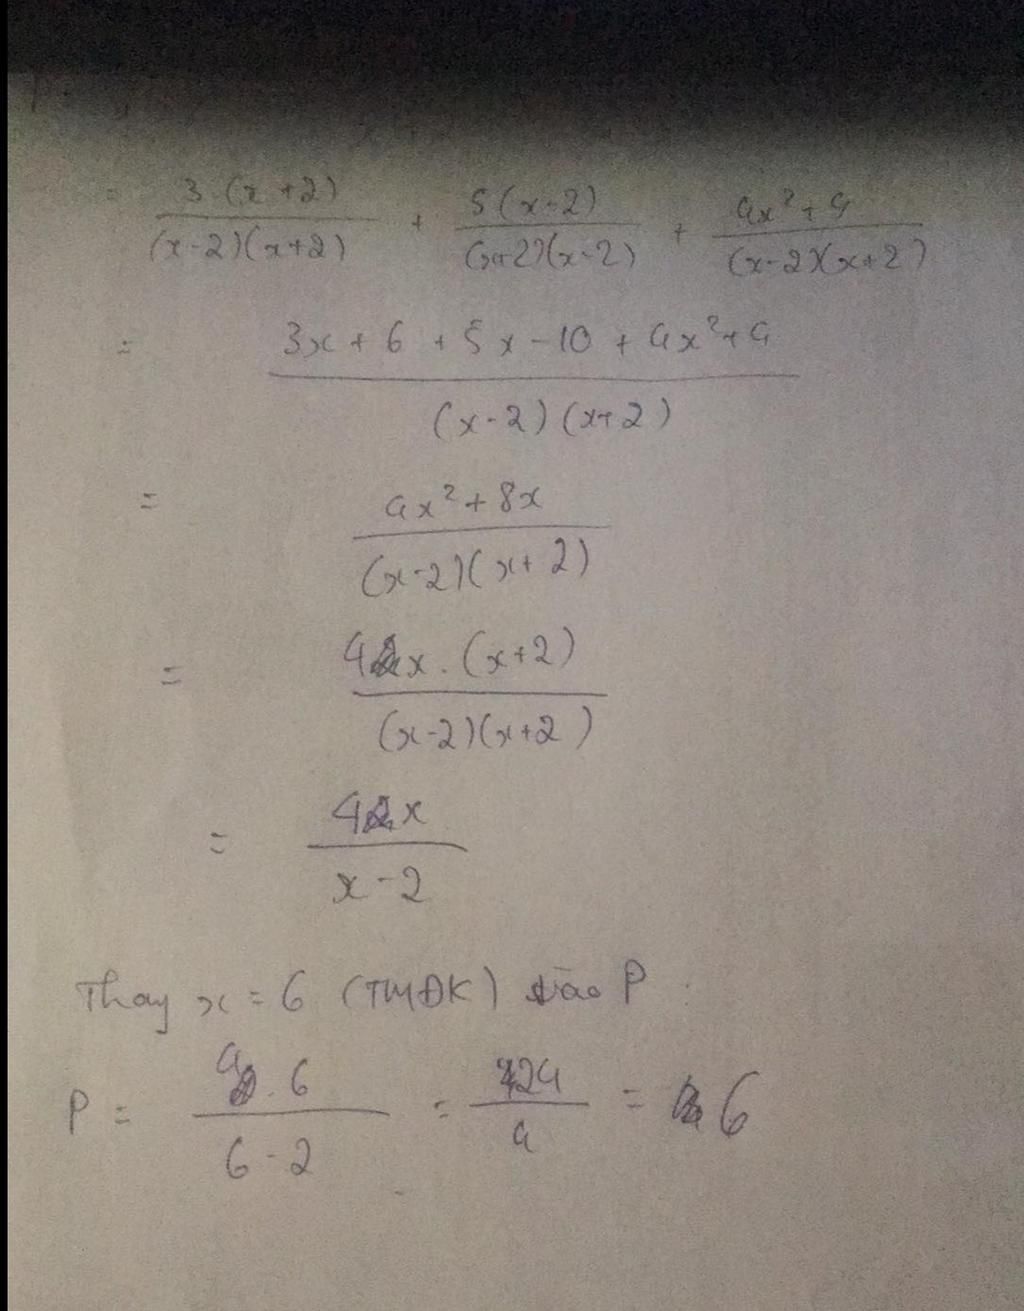 = 3.(x+2)/(x-2)(x+2) + 5(x-2)/(x+2)(x-2) + 4x²+4/(x-2)(x+2)
= 3x+6+5x-10+4x²+4/(x-2)(x+2)
= 4x²+8x/(x-2)(x+2)
= 4x.(x+2)/(x-2)(x+2)
= 4x/x-2
Thay x=6 (TMĐK) vào P:
P = 4.6/6-2 = 24/4 = 6